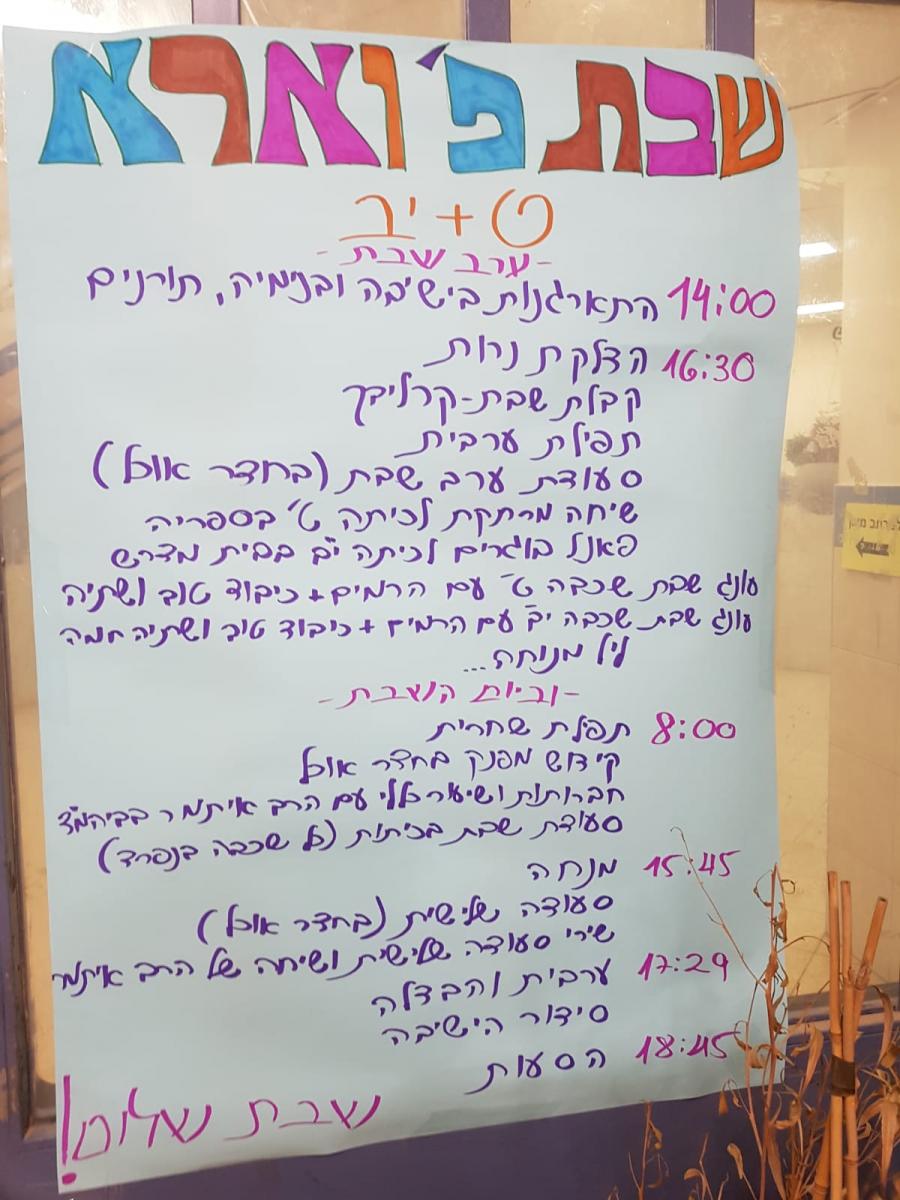 שבת פ' וארא
ט + יב
-ערב שבת-
14:00 התארגנות בישיבה ובפנימיה, תורנים
16:30 הדלקת נרות
קבלת שבת-קרליבך
תפילת ערבית
סעודת ערב שבת (בחדר אוכל)
שיחה מרתקת לכיתה ט' בספריה
פאנל בוגרים לכיתה י"ב בבית מדרש
עונג שבת שכבה ט' עם הרמים + כיבוד טוב ושתיה
עונג שבת שכבה יב עם הרמים + כיבוד טוב ושתיה חמה
ליל מנוחה...
-וביום השבת-
8:00 תפילת שחרית
קידוש מפנק בחדר אוכל
חברותות ושיעור כללי עם הרב איתמר בביהמ"ד
סעודת שבת בכיתות (כל שכבה בנפרד)
15:45 מנחה
סעודה שלישית (בחדר אוכל)
שירי סעודה שלישית ושיחה של הרב איתמר
17:29 ערבית והבדלה
סידור הישיבה
18:45 הסעות
שבת שלום!